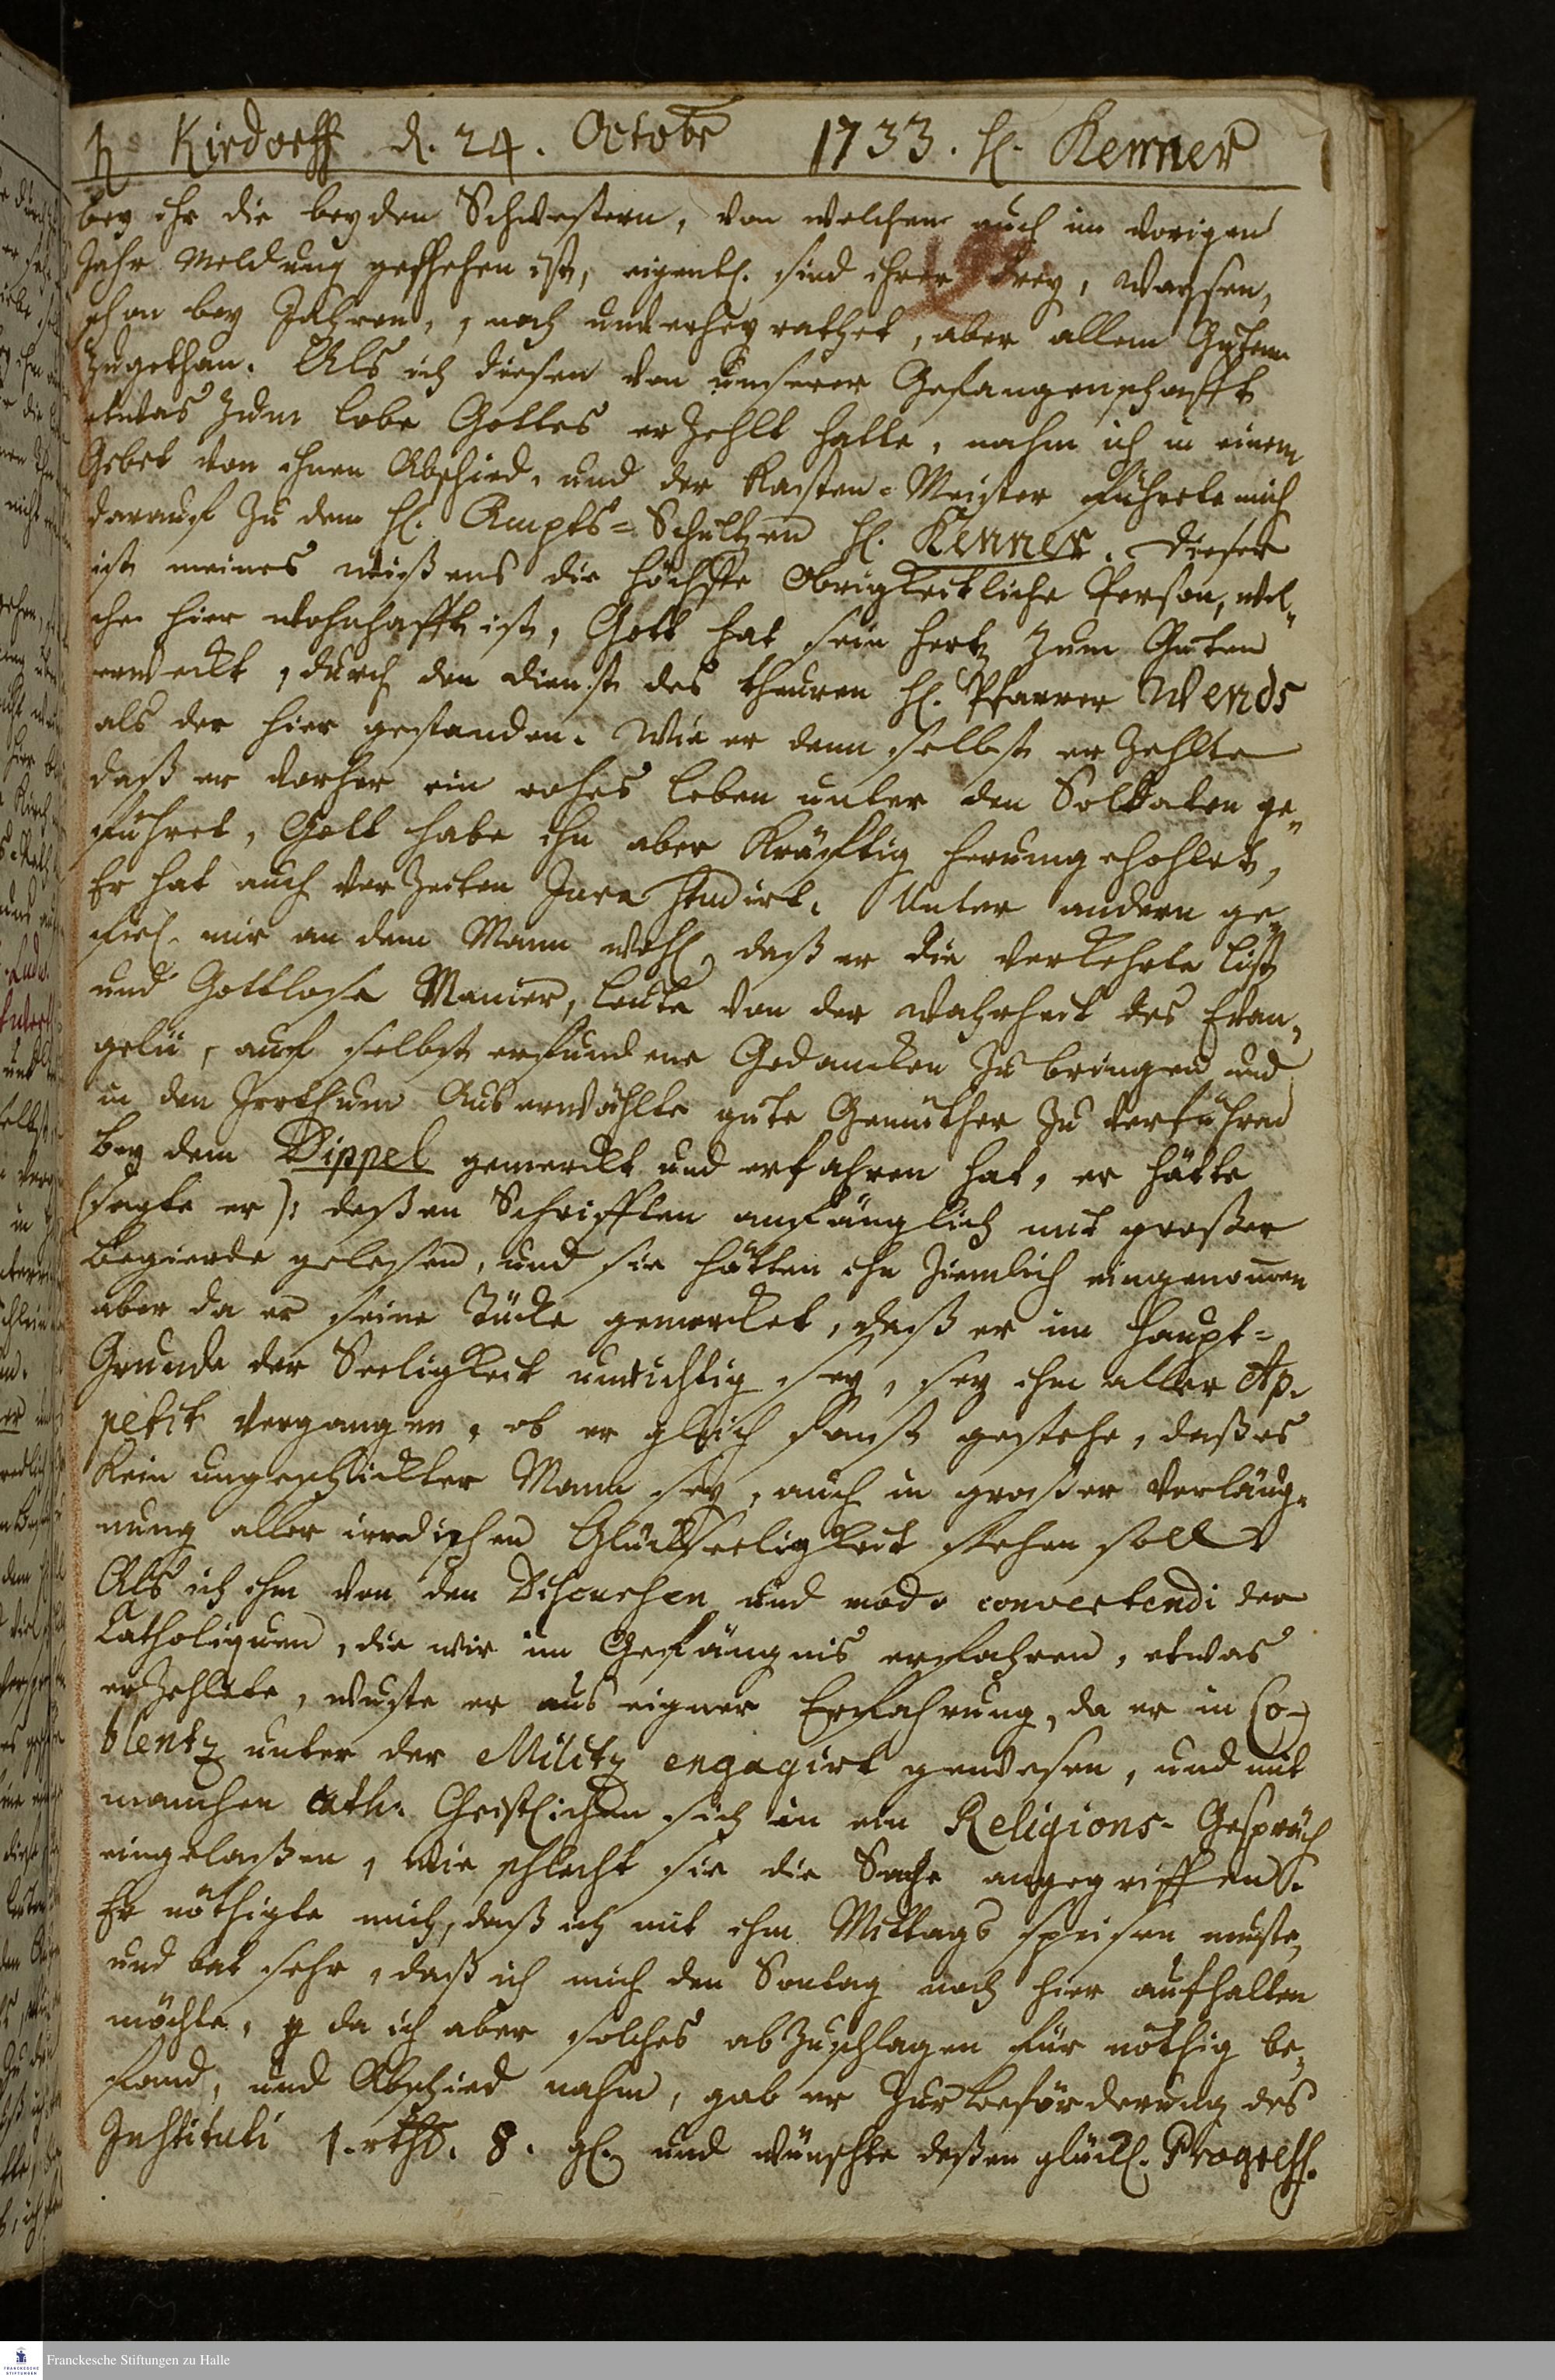 ♄ Kirdorff d. 24. Octobr 1733. H. Kenner
bey ihr die beyden Schwestern, von welchen auch im vorigen
Jahr Meldung geschehen ist, eigentl. sind ihrer drey, Waysen,
schon bey Jahren, noch unverheyrathet, aber allem Guten
zugethan. Als ich diesen von unserer Gefangenschafft
etwas zum Lobe Gottes erzehlt hatte, nahm ich in einem
Gebet von ihnen Abschied, und der Kasten-Meister führete mich
darauf zu dem H. Ampts-Schultzen H. Kenner. Dieser
ist meines wißens die höchste Obrigkeitliche Person, wel-
che hier wohnhafft ist, Gott hat sein Hertz zum Guten
erweckt, durch den Dienst des theuren H. Pfarrer Wends
als der hier gestanden. Wie er denn selbst erzehlte
daß er vorher ein rohes Leben unter den Soldaten ge-
führet, Gott habe ihn aber kräftig herumgehohlet,
Er hat auch vor Zeiten Jura studirt. Unter andern ge-
fiel mir an dem Mann wohl, daß er die verkehrte List
und Gottlose Manier, Leute von der Wahrheit des Evan-
gelii, auf selbst erfundene Gedancken zu bringen und
in den Irrthum Auserwählte gute Gemüther zu verführen
bey dem Dippel gemerckt und erfahren hat, er hätte
(sagte er): deßen Schrifften anfänglich mit großer
Begierde gelesen, und sie hätten ihn ziemlich eingenommen
aber da er seine Tücke gemercket, daß er im Haupt-
Grunde der Seeligkeit unrichtig sey, sey ihm aller Ap-
petit vergangen, ob er gleich sonst gestehe, daß es
kein ungeschickter Mann sey, auch in großer Verläug-
nung aller irrdischen Glückseeligkeit stehen soll.
Als ich ihm von den Discursen und modo convertendi der
Catholiquen, die wir im Gefängnis erfahren, etwas
erzehlete, wuste er aus eigner Erfahrung, da er in Co-
blentz unter der Militz engagirt gewesen, und mit
manchen Cath. Geistlichen sich in ein Religions-Gespräch
eingelaßen, wie schlecht sie die Sache angegriffen.
Er nöthigte mich, daß ich mit ihm Mittags speisen muste,
und bat sehr, daß ich mich den Sontag noch hier aufhalten
möchte, da ich aber solches abzuschlagen für nöthig be-
fand, und Abschied nahm, gab er zur Beförderung des
Instituti 1. rthl. 8. gl. und wünschte deßen glückl. Progress.
Franckesche Stiftungen zu Halle